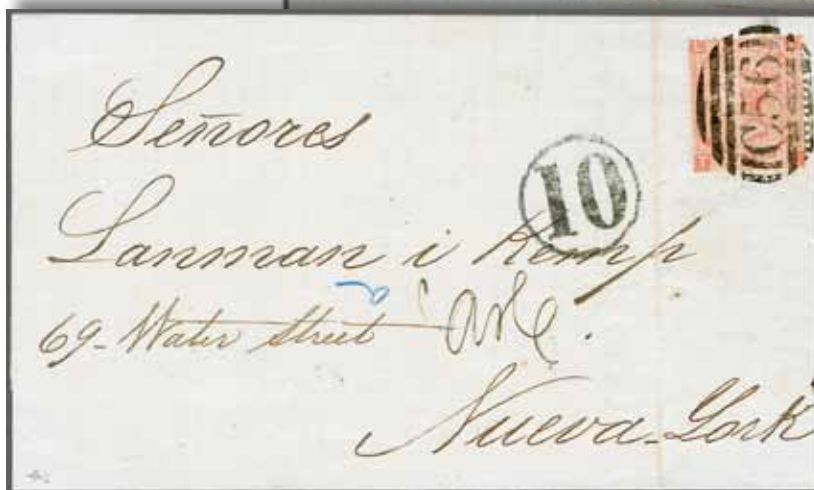 C56
Señores
10
Lanman i Kemp
69_ Water Street
Nueva_York